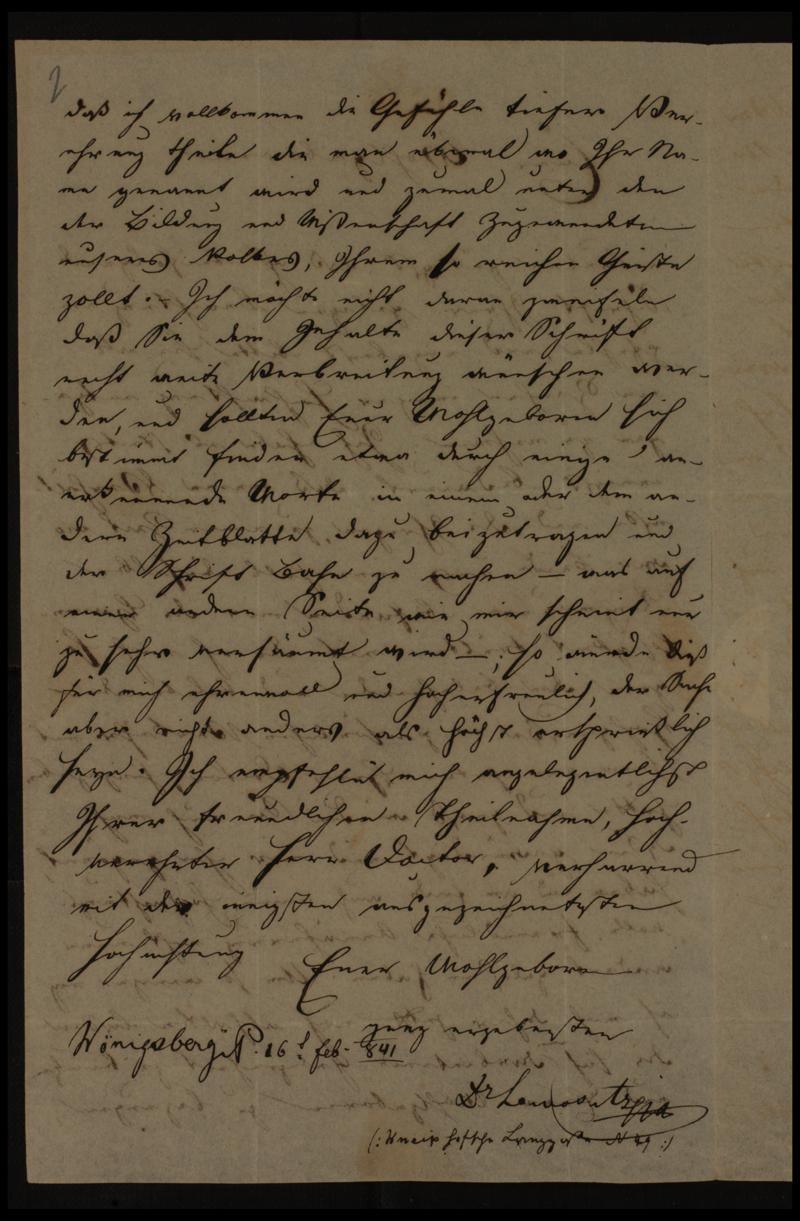 2
daß ich vollkommen die Gefühle tiefer Ver-
ehrung theile die man überall wo Ihr Na-
me genannt wird und zumal unter den
der Bildung und Wißenschaft Zugewendeten
unseres Volkes, Ihrem so reichen Geiste
zollt. – Ich möchte nicht daran zweifeln
daß Sie dem Gehalte dieser Schrift
recht weite Verbreitung wünschen wer-
den, und sollten Euer Wohlgeboren sich
bestimmt finden etwa durch einige an-
erkennende Worte in einem oder dem an-
dern Zeitblatte dazu beizutragen und
der Schrift Bahn zu machen – was auf
einer andern Seite wie mir scheint nur
zu sehr versäumt wird –; so würde dieß
für mich ehrenvoll und hocherfreulich, der Sache
aber nicht anders als höchst ersprießlich
seyn. Ich empfehle mich angelegentlichst
Ihrer freundlichen Theilnahme, hoch-
verehrter Herr Doctor, verharrend
mit der innigsten ausgezeichnetesten
Hochachtung Euer Wohlgeboren
ganz ergebensten
Königsberg i/P. 16 t. feb. 841
Dr
(: Kneiphöfsche Langgasse N :)